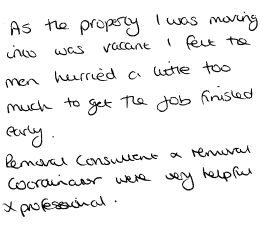 As the property I was moving
into was vacant I felt the
men hurried a little too
much to get the job finished
early.
Removal Consultant & removal
coordinator were very helpful
& professional.